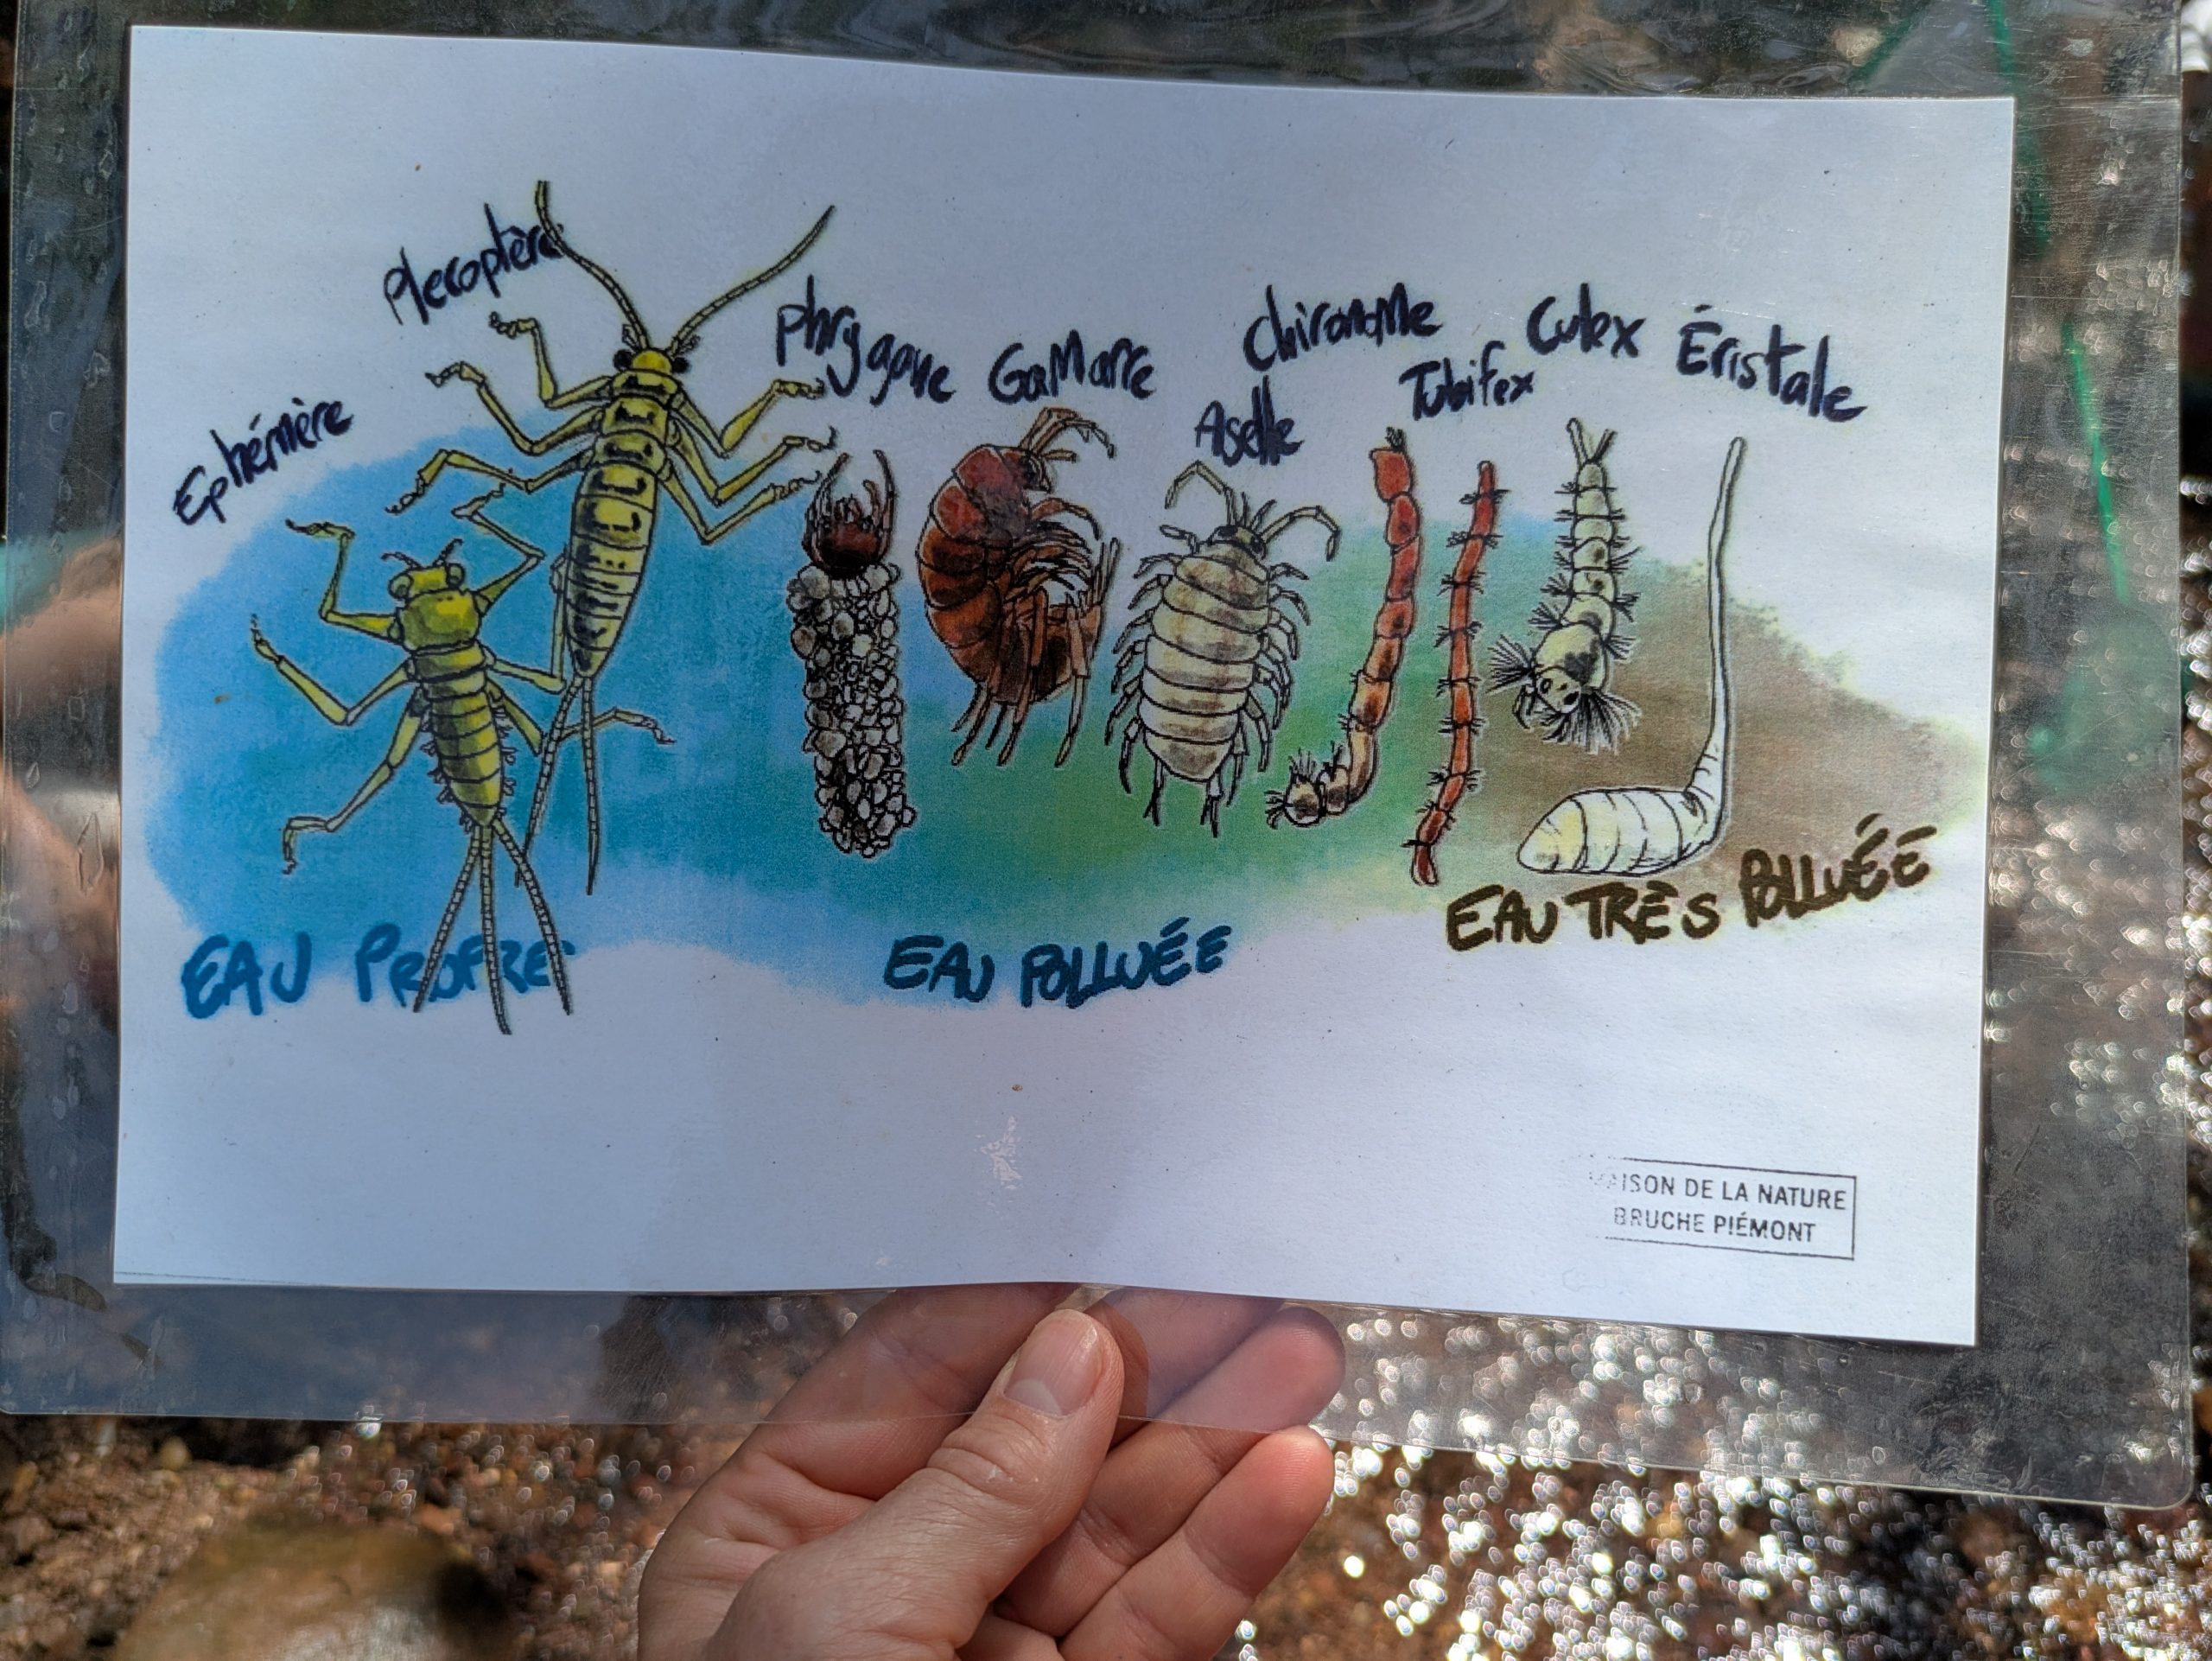 Plecoptère
Phrygane
Gammare
Chironome
Culex
Éristale
Tubifex
Aselle
Ephémère
EAU PROPRE
EAU POLLUÉE
EAU TRÈS POLLUÉE
MAISON DE LA NATURE
BRUCHE PIÉMONT